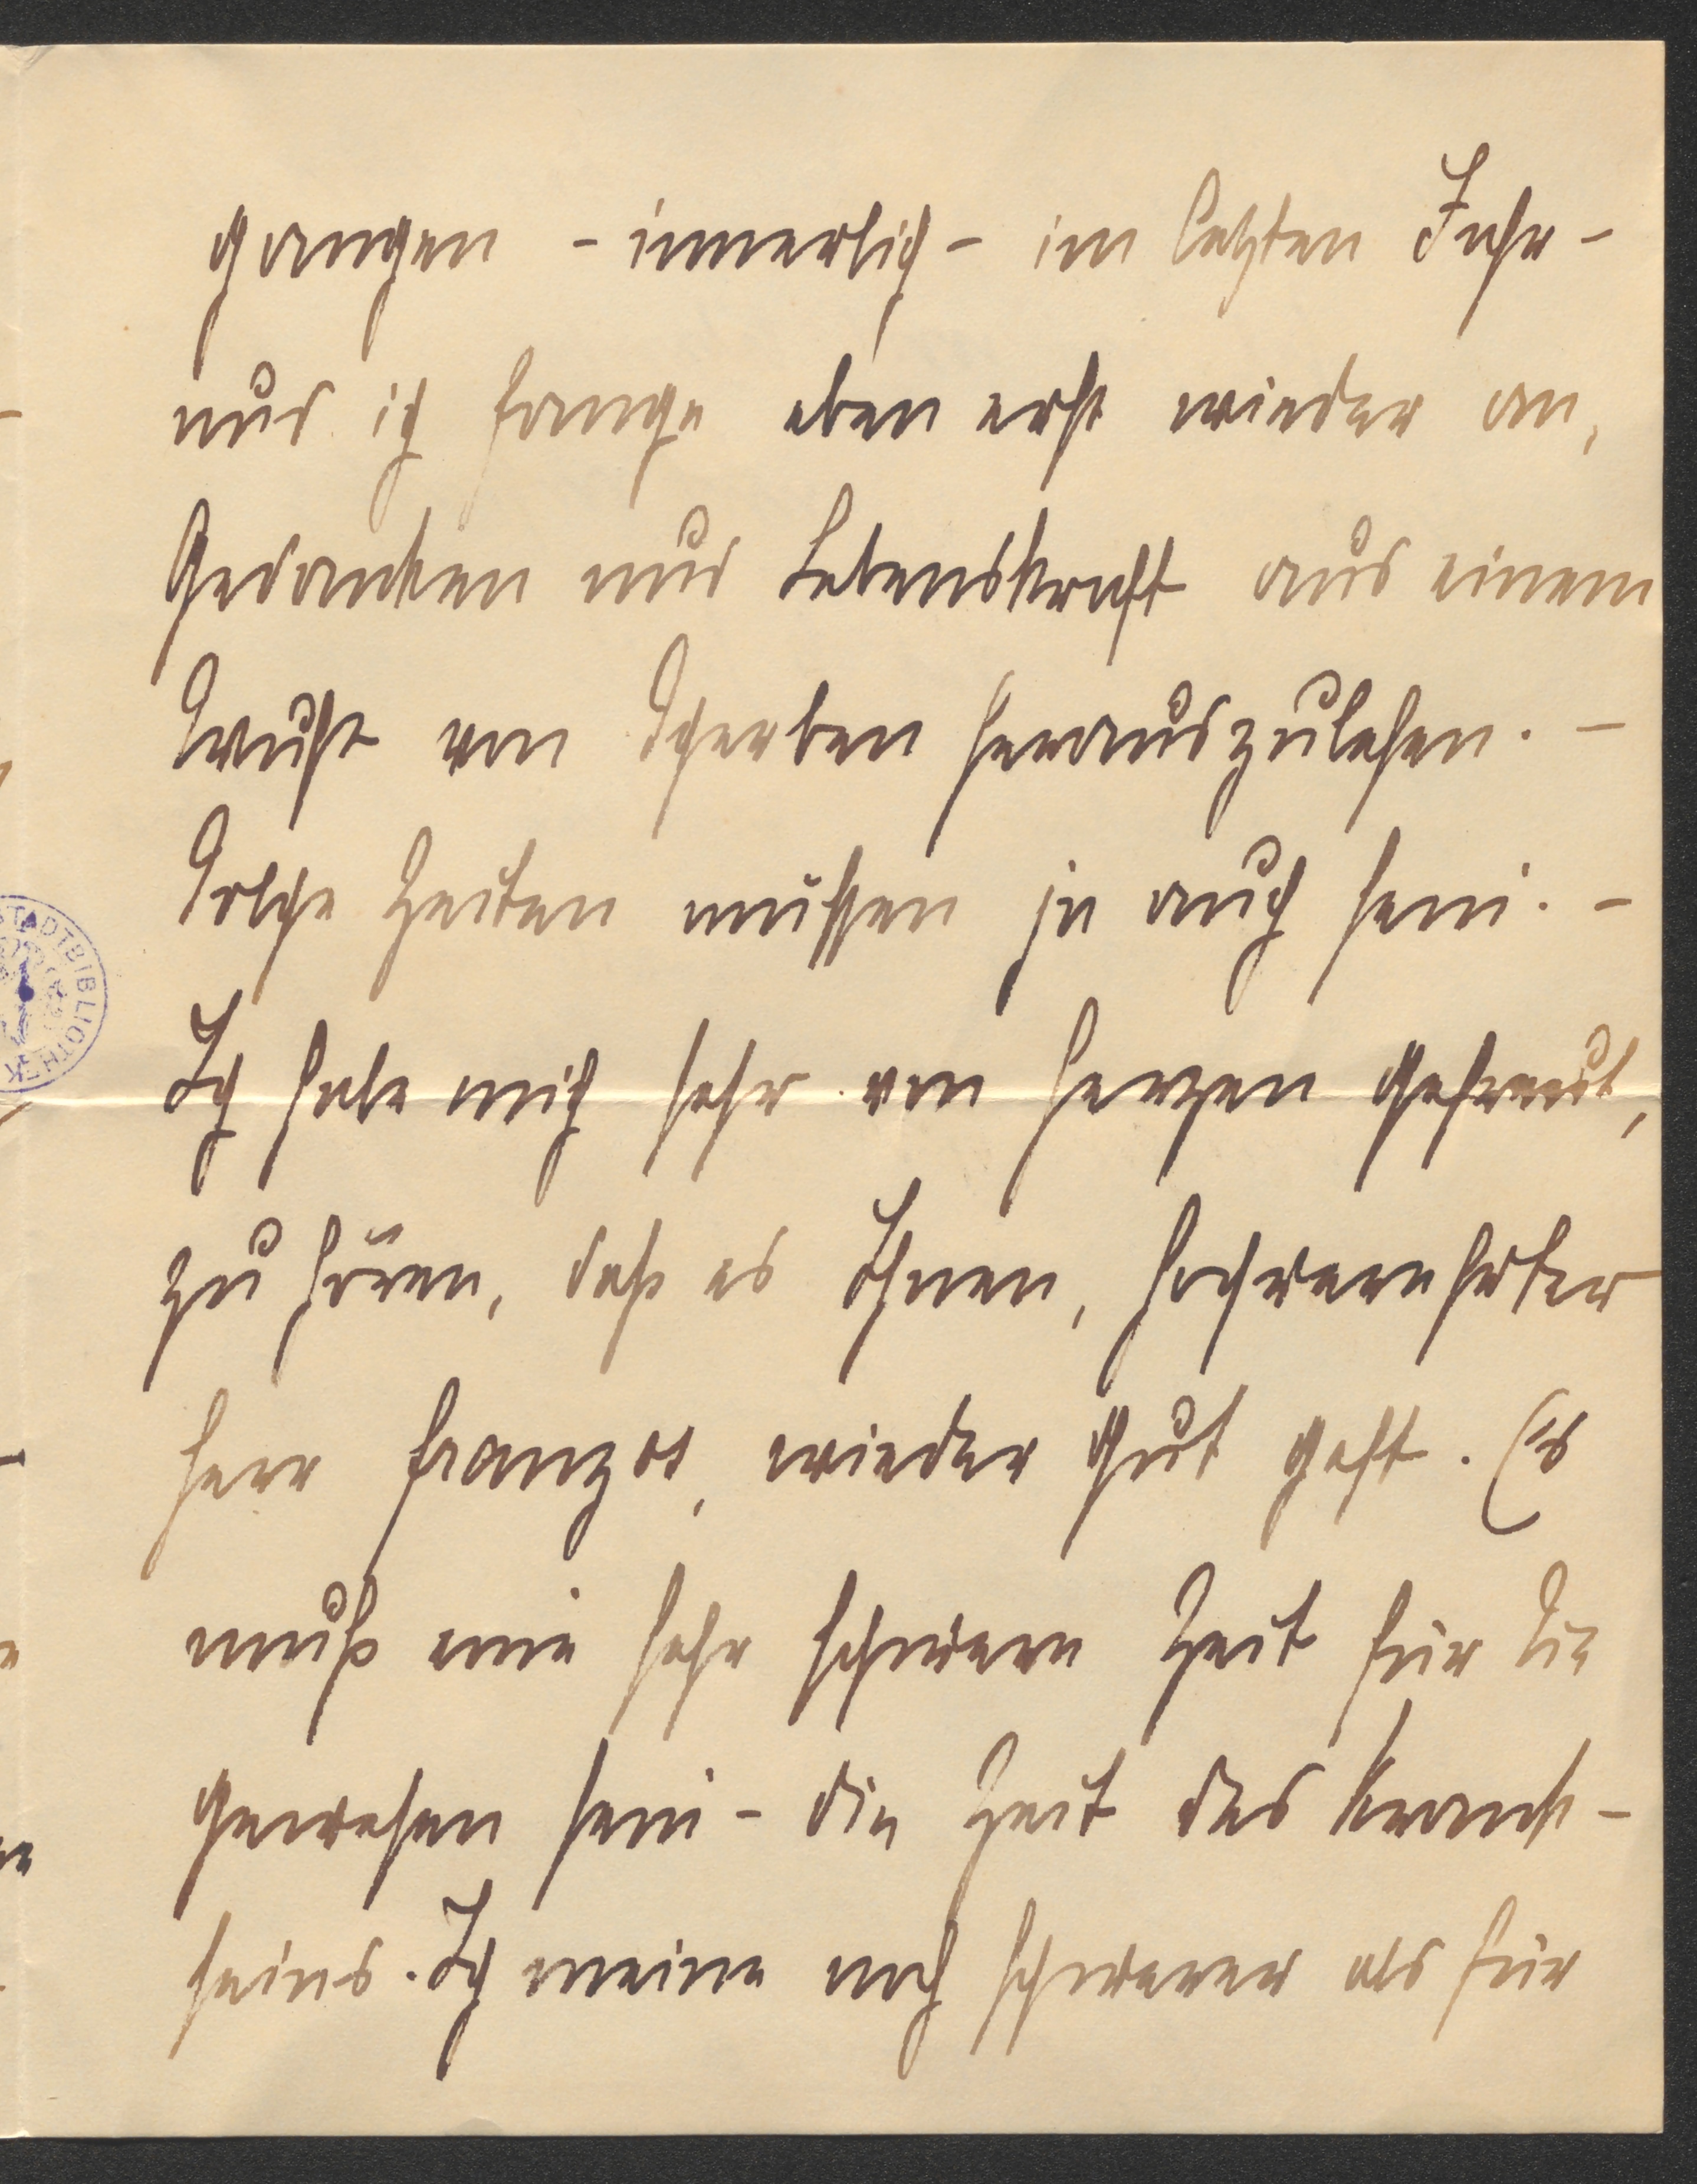 gangen - innerlich - im letzten Jahr -
und ich fange eben erst wieder an,
Gedanken und Lebenskraft aus einem
Wust von Scherben herauszulesen. -
Solche Zeiten müssen ja auch sein. -
Ich habe mich sehr von Herzen gefreut,
zu hören, daß es Ihnen, hochverehrter
Herr Franzos, wieder gut geht. Es
muß eine sehr schwere Zeit für Sie
gewesen sein - die Zeit des Krank-
seins. Ich meine noch schwerer als für
STADTBIBLIOTHEK